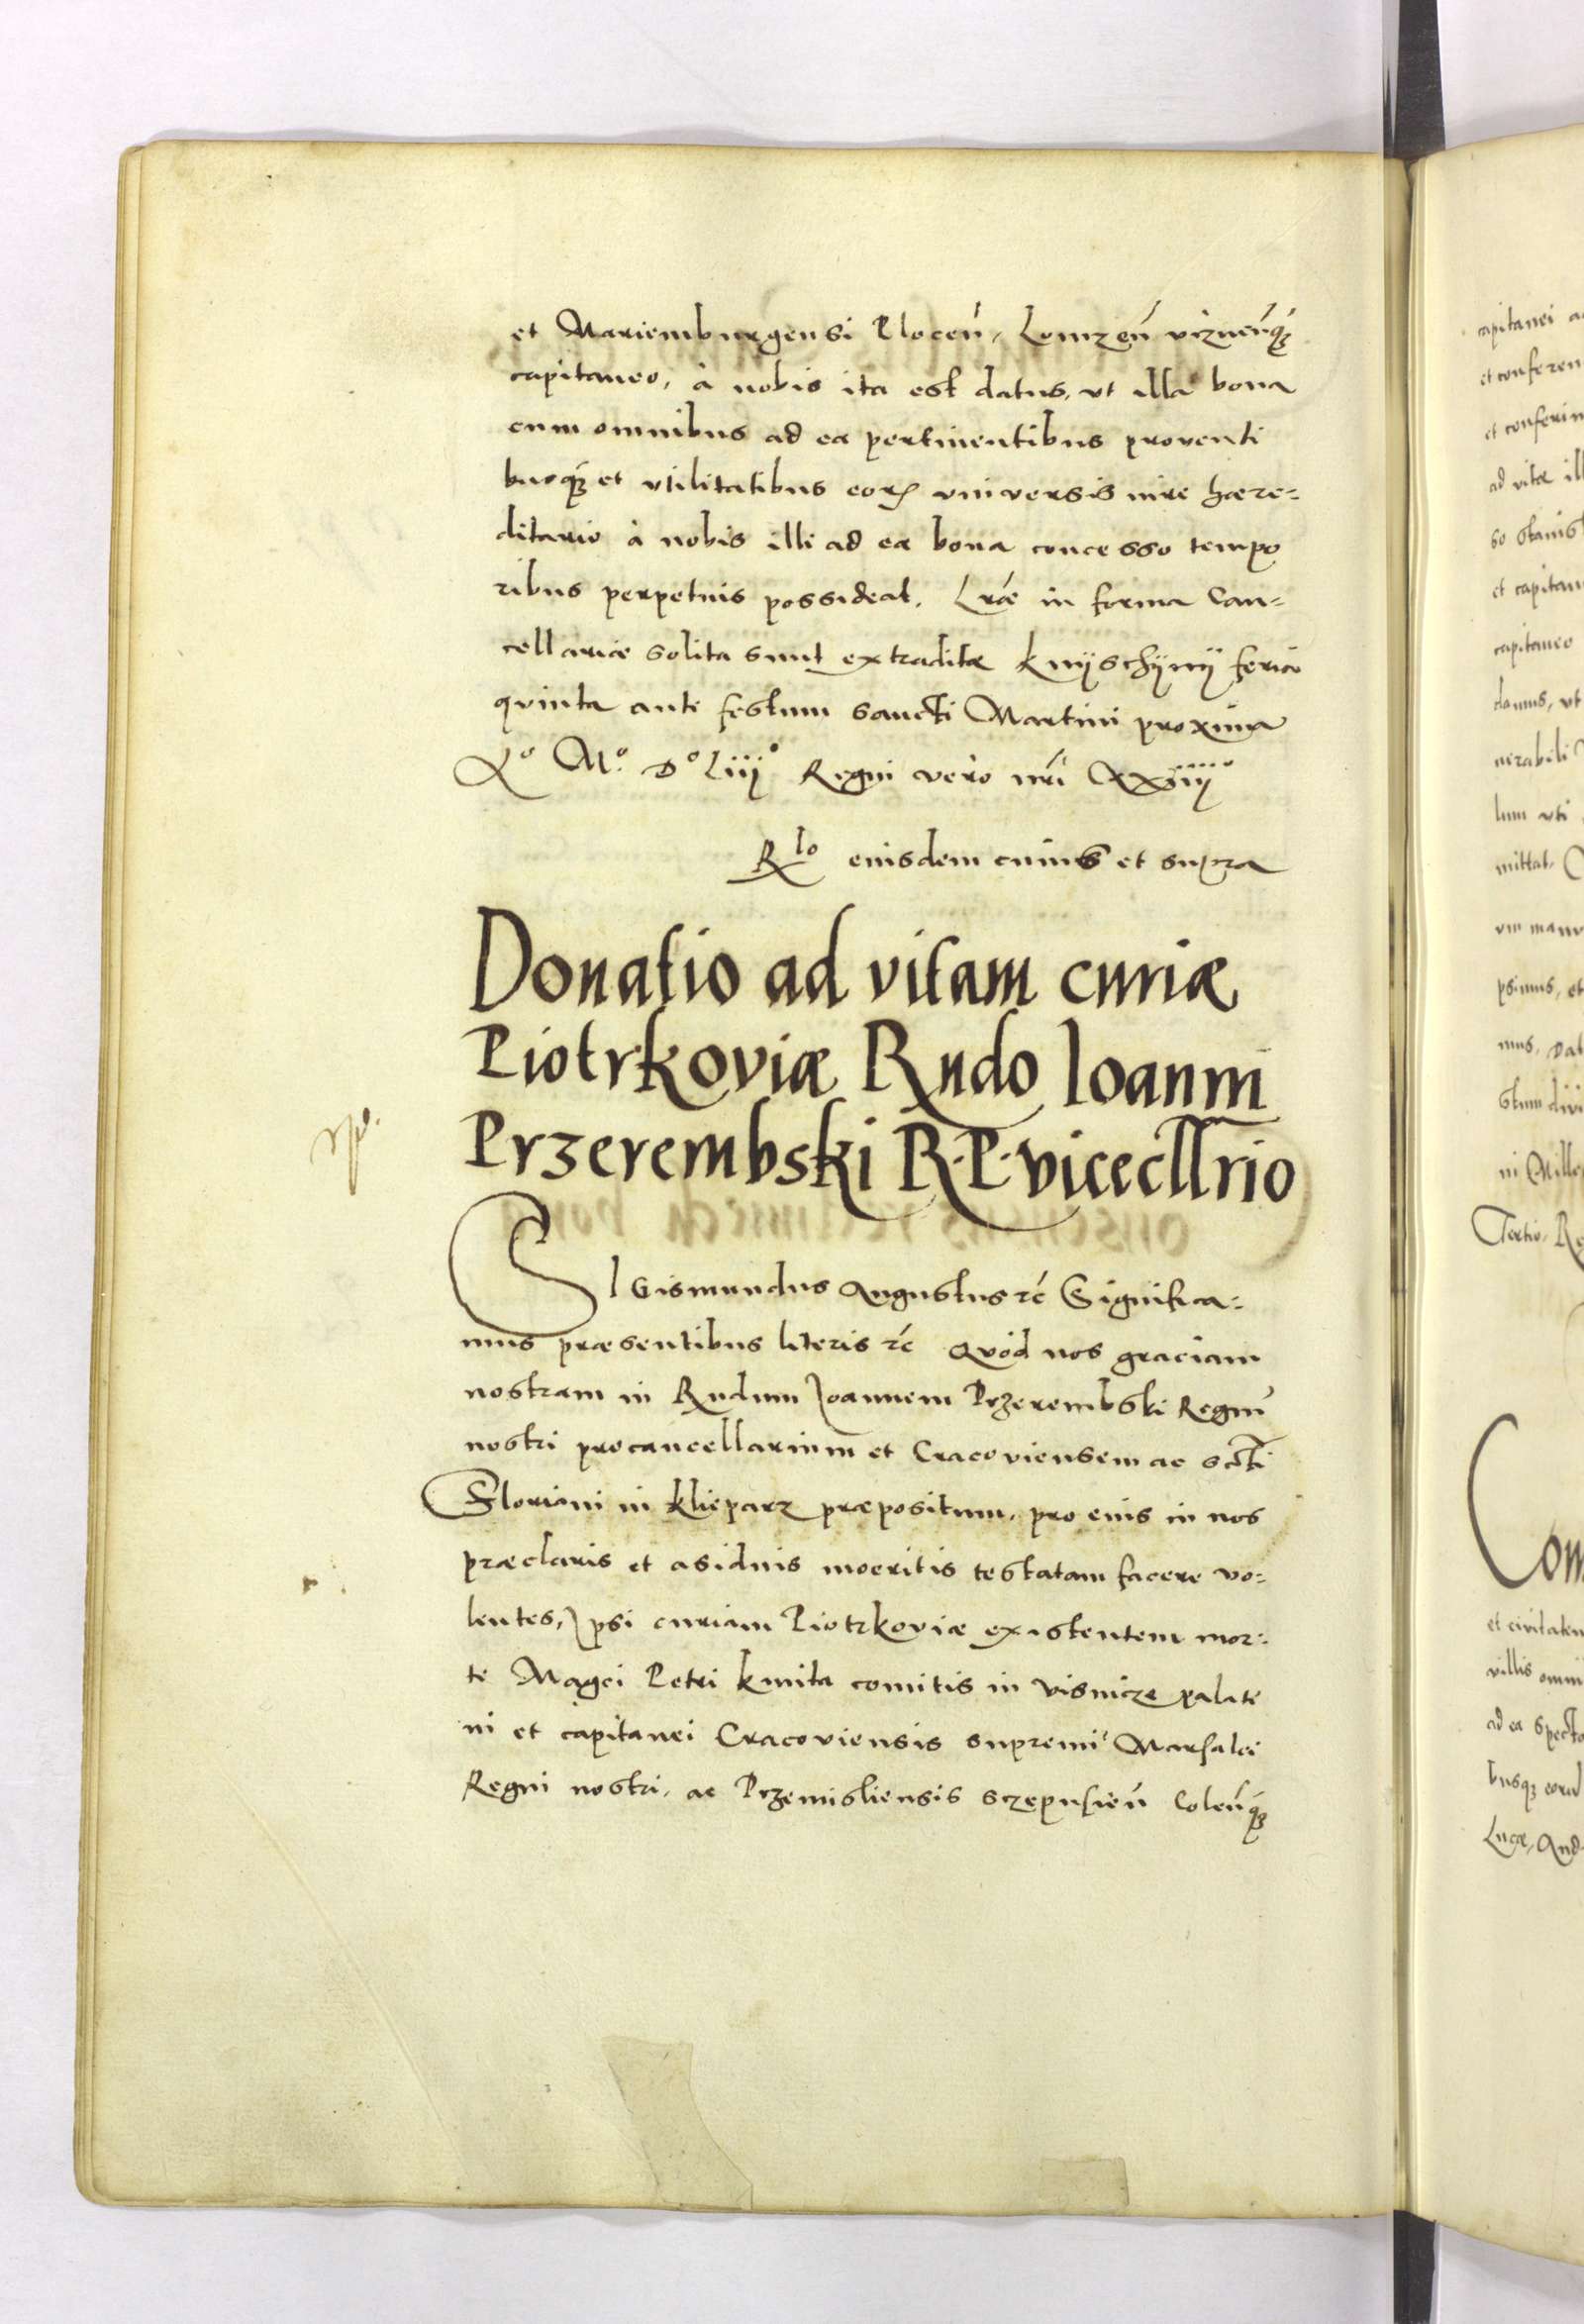 et Mariemburgensi Plocen̄, Lomzen̄ viznen̄q́ꝫ
capitaneo, à nobis ita est datus, vt illa bona
cum omnibus ad ea pertinentibus proventi
busq́ꝫ et vtilitatibus eorꝝ vniversis iure hære=
ditario à nobis illi ad ea bona concesso tempo
ribus perpetuis possideat. Lræ in forma Can=
cellariæ solita sunt extraditæ Knÿschÿnÿ feria
qvinta ante festum sancti Martini proxima
Aº Mº Dº Liijº Regni vero nrī XXiiijº
Rlo eiusdem cuius et supra
Donatio ad vitam curiæ
Piotrkoviæ Rndo Ioanni
Przerembski R. P. vicecllrio
SIGismundus Augustus rć Significa=
mus præsentibus literis rć Qvód nos graciam
nostram in Rndum Joannem Przerembski Regni
nostri procancellarium et Cracoviensem ac scti
Floriani in Klieparz præpositum, pro eius in nos
præclaris et asiduis moeritis testatam facere vo=
lentes, Jpsi curiam Piotrkoviæ existentem mor=
te Magci Petri Kmita comitis in Visnicze palati
ni et capitanei Cracoviensis supremi Marsalci
Regni nostri, ac Przemisliensis Sczepusien̄ Colen̄q́ꝫ
capitanei
et conferin
ad vitæ ill
so Stanisl
et capitan
capitaneo
damus, vt
nerabili
lum vti
mittat.
vm manv
psimus, et
mus, Dat
stum divi
ni Mille
Tertio. Re
Com
et civitatem
villis omni
ad ea specta
busqꝫ eorvd
Lucæ, And